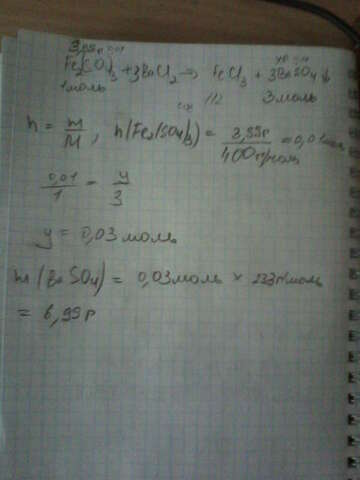 Fe₂(SO₄)₃ + 3BaCl₂ → FeCl₃ + 3BaSO₄↓
1 моль 3 моль
n = m/M, n(Fe₂(SO₄)₃) = 3,99г/400г/моль = 0,01моль
0,01/1 = y/3
y = 0,03 моль
m(BaSO₄) = 0,03моль × 233г/моль
= 6,99г